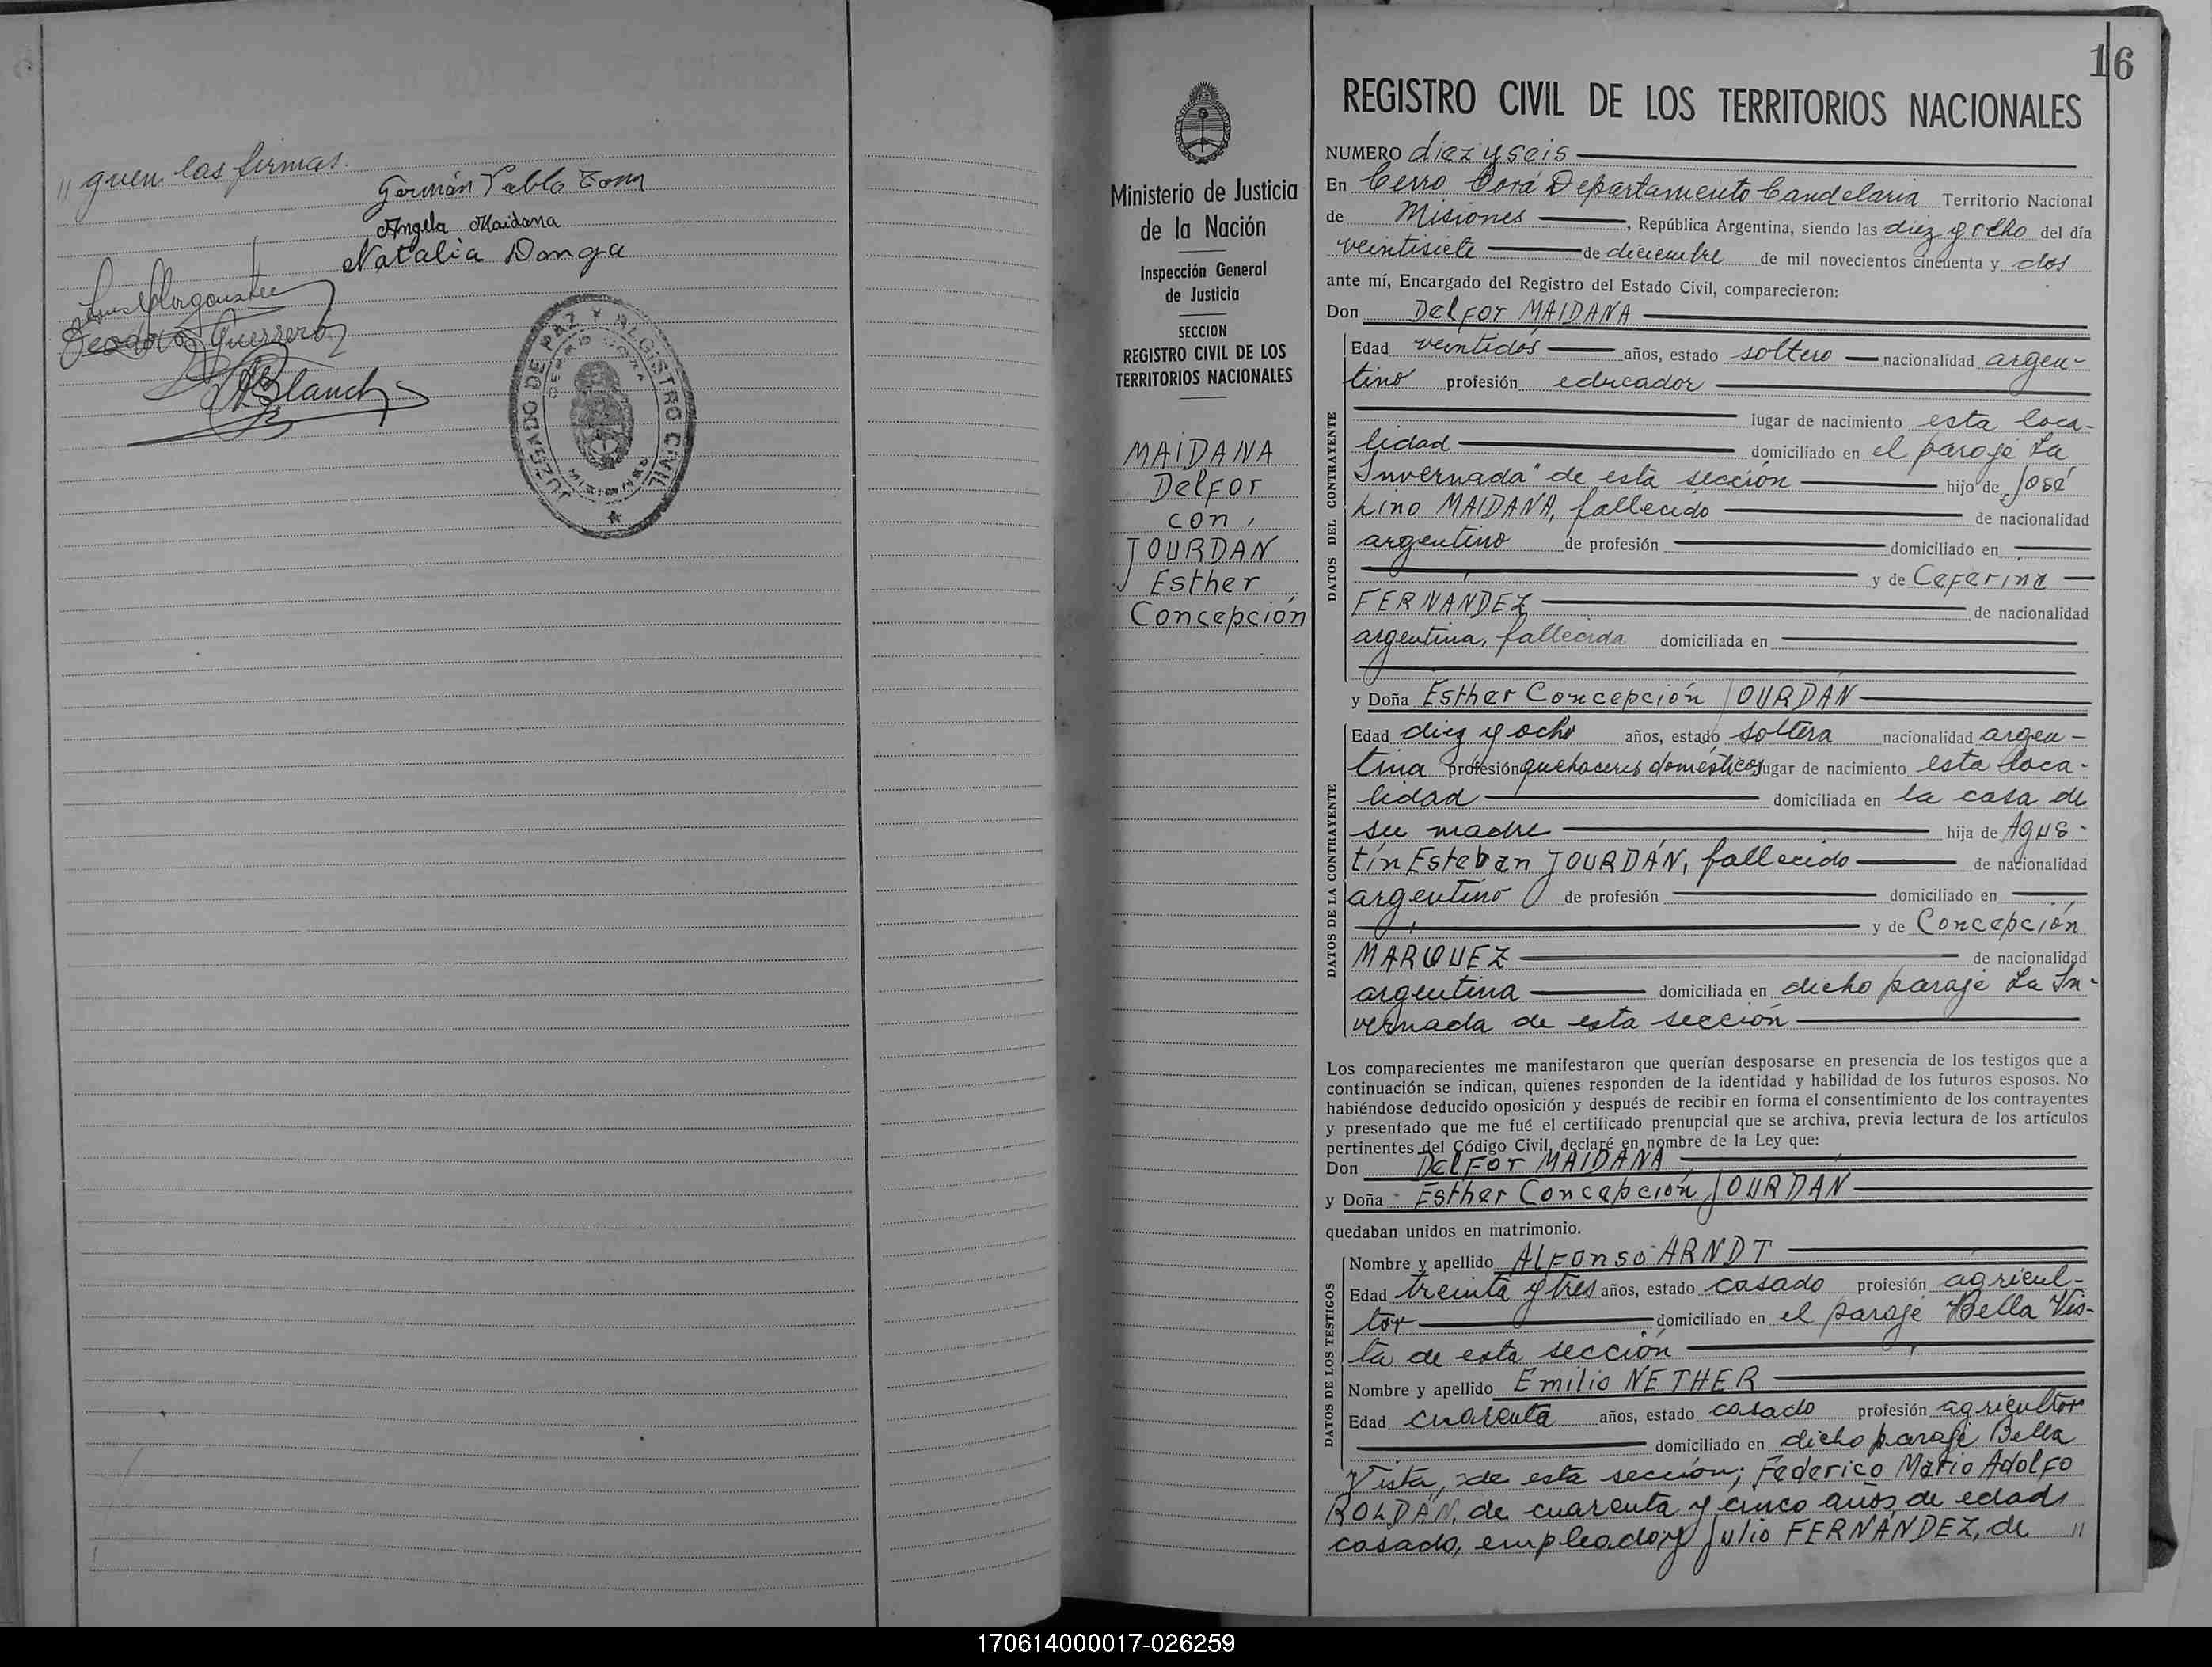 // guen las firmas.
Germán Pablo
Angela Maidana
Natalia Donga
Teodoro Guerrero
Blanch
JUZGADO DE PAZ Y REGISTRO CIVIL
CERRO CORA
MISIONES
16
Ministerio de Justicia
de la Nación
Inspección General
de Justicia
SECCION
REGISTRO CIVIL DE LOS
TERRITORIOS NACIONALES
MAIDANA
Delfor
con
JOURDAN
Esther
Concepción
REGISTRO CIVIL DE LOS TERRITORIOS NACIONALES
NUMERO diez y seis
En Cerro Corá Departamento Candelaria Territorio Nacional
de Misiones, República Argentina, siendo las diez y ocho del día
veintisiete de diciembre de mil novecientos cincuenta y dos
ante mí, Encargado del Registro del Estado Civil, comparecieron:
Don Delfor MAIDANA
DATOS DEL CONTRAYENTE
Edad veintidós años, estado soltero nacionalidad argen-
tino profesión educador
lugar de nacimiento esta loca-
lidad domiciliado en el paraje La
Invernada" de esta sección hijo de José
Lino MAIDANA, fallecido de nacionalidad
argentino de profesión domiciliado en
y de Ceferina
FERNANDEZ de nacionalidad
argentina, fallecida domiciliada en
y Doña Esther Concepción JOURDAN
DATOS DE LA CONTRAYENTE
Edad diez y ocho años, estado soltera nacionalidad argen-
tina profesión quehaceres domésticos lugar de nacimiento esta loca-
lidad domiciliada en la casa de
su madre hija de Agus-
tín Esteban JOURDÁN, fallecido de nacionalidad
argentino de profesión domiciliado en
y de Concepción
MARQUEZ de nacionalidad
argentina domiciliada en dicho paraje La In-
vernada de esta sección
Los comparecientes me manifestaron que querían desposarse en presencia de los testigos que a
continuación se indican, quienes responden de la identidad y habilidad de los futuros esposos. No
habiéndose deducido oposición y después de recibir en forma el consentimiento de los contrayentes
y presentado que me fué el certificado prenupcial que se archiva, previa lectura de los artículos
pertinentes del Código Civil, declaré en nombre de la Ley que:
Don Delfor MAIDANA
y Doña Esther Concepción JOURDAN
quedaban unidos en matrimonio.
DATOS DE LOS TESTIGOS
Nombre y apellido Alfonso ARNDT
Edad treinta y tres años, estado casado profesión agricul-
tor domiciliado en el paraje Bella Vis-
ta de esta sección
Nombre y apellido Emilio NETHER
Edad cuarenta años, estado casado profesión agricultor
domiciliado en dicho paraje Bella
Vista, de esta sección; Federico Mario Adolfo
ROLDÁN, de cuarenta y cinco años de edad
casado, empleado y Julio FERNÁNDEZ, de //
170614000017-026259